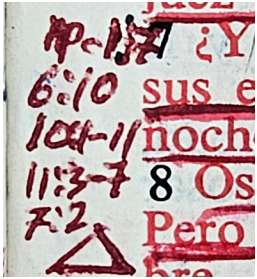 Ap. 1:7
6:10
11:3-7
7:2
juez
¿Y
sus e
noch
8 Os
Pero
bre